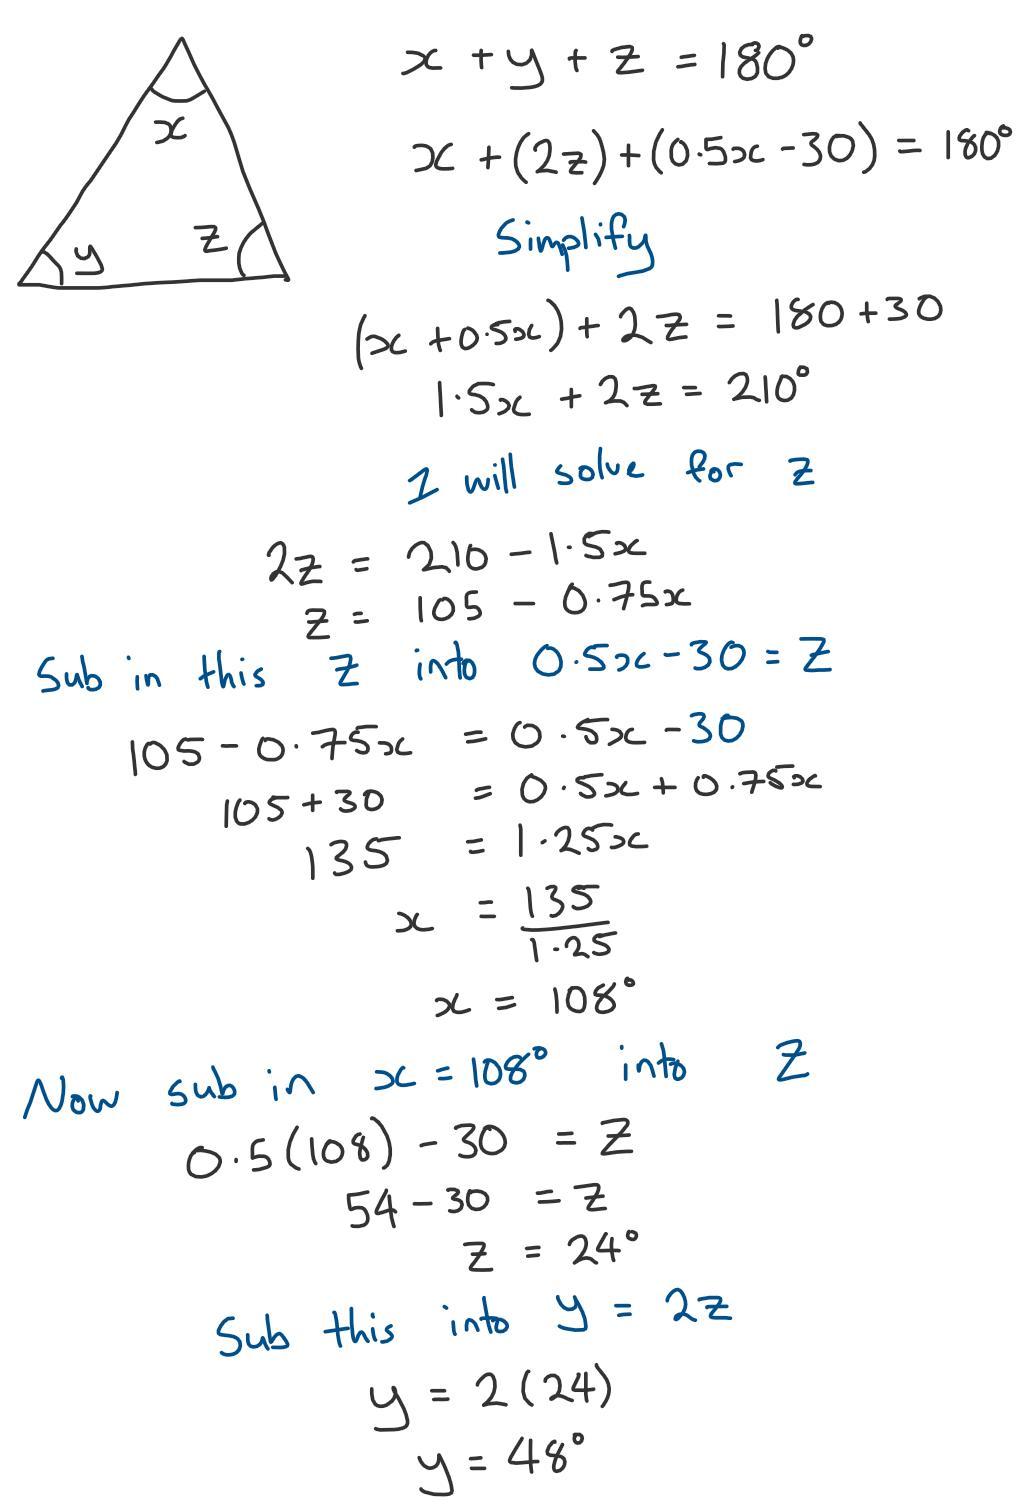 x
y
z
x + y + z = 180°
x + (2z) + (0.5x - 30) = 180°
Simplify
(x + 0.5x) + 2z = 180 + 30
1.5x + 2z = 210°
I will solve for z
2z = 210 - 1.5x
z = 105 - 0.75x
Sub in this z into 0.5x - 30 = z
105 - 0.75x = 0.5x - 30
105 + 30 = 0.5x + 0.75x
135 = 1.25x
x = 135/1.25
x = 108°
Now sub in x = 108° into z
0.5(108) - 30 = z
54 - 30 = z
z = 24°
Sub this into y = 2z
y = 2(24)
y = 48°